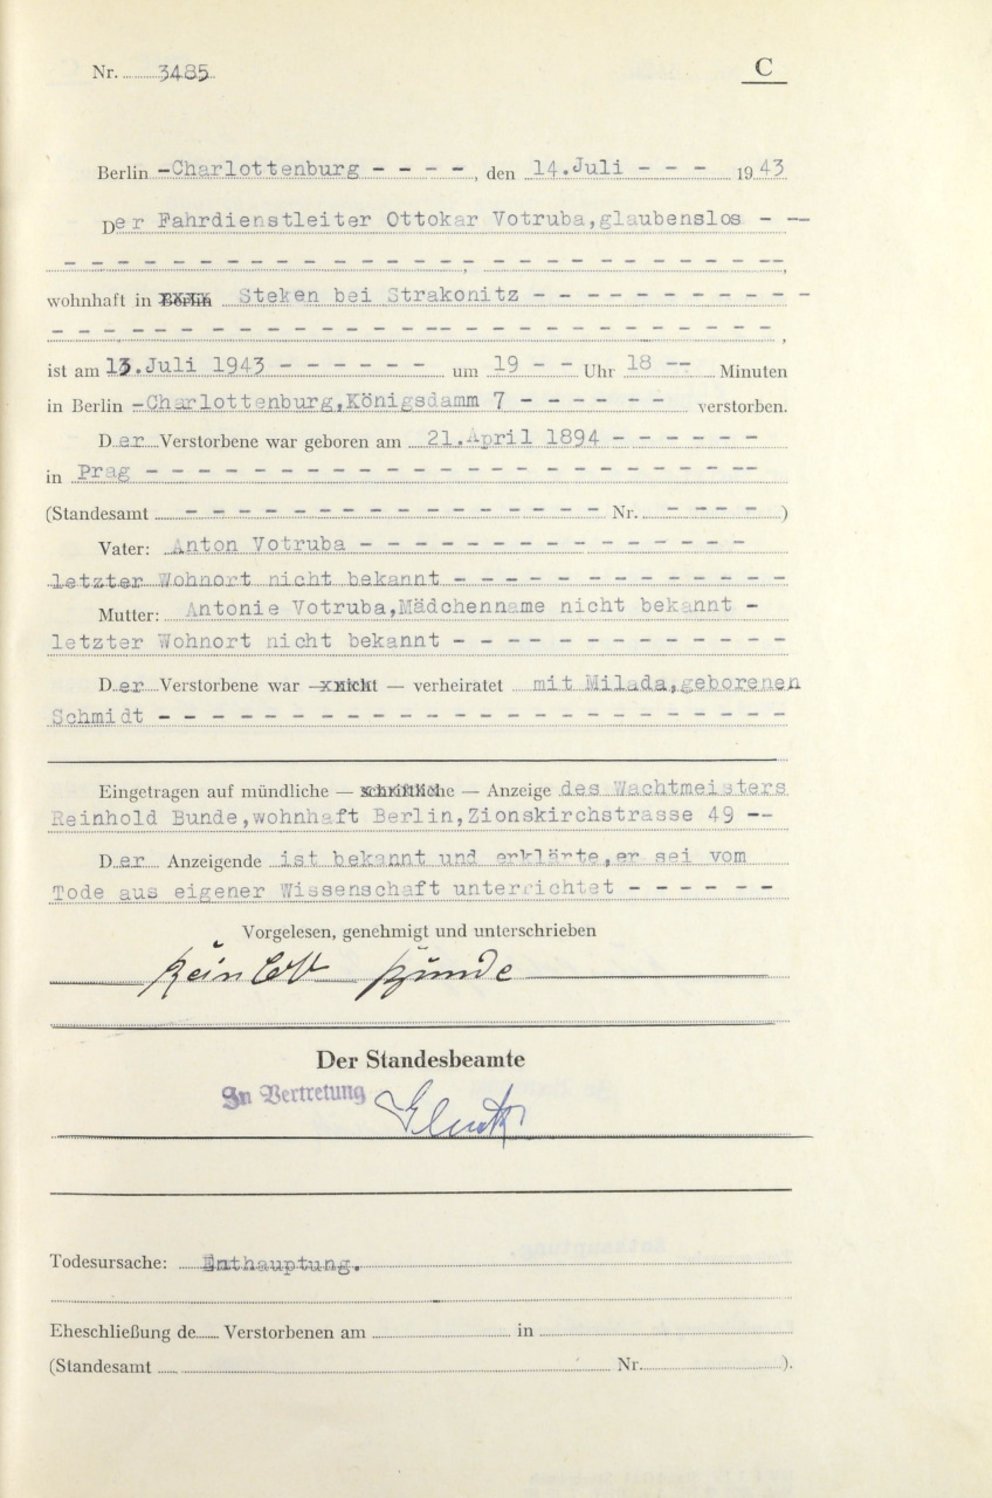 Nr. 3485
C
Berlin -Charlottenburg - - - - , den 14.Juli - - - 1943
Der Fahrdienstleiter Ottokar Votruba,glaubenslos - --
- - - - - - - - - - - - - - - - , - - - - - - - - - - - --,
wohnhaft in Berlin Steken bei Strakonitz - - - - - - - - - - -
- - - - - - - - - - - - - - - - - - - - - - - - - - - - ,
ist am 13.Juli 1943 - - - - - - um 19 - - Uhr 18 -- Minuten
in Berlin -Charlottenburg,Königsdamm 7 - - - - - - verstorben.
Der Verstorbene war geboren am 21.April 1894 - - - - - -
in Prag - - - - - - - - - - - - - - - - - - - - - - --
(Standesamt - - - - - - - - - - - - - - - - Nr. - - - - )
Vater: Anton Votruba - - - - - - - - - - - - - - -
letzter Wohnort nicht bekannt - - - - - - - - - - - - -
Mutter: Antonie Votruba,Mädchenname nicht bekannt -
letzter Wohnort nicht bekannt - - - - - - - - - - - - -
Der Verstorbene war — nicht — verheiratet mit Milada,geborenen
Schmidt - - - - - - - - - - - - - - - - - - - - - - - -
Eingetragen auf mündliche — schriftliche — Anzeige des Wachtmeisters
Reinhold Bunde,wohnhaft Berlin,Zionskirchstrasse 49 --
Der Anzeigende ist bekannt und erklärte,er sei vom
Tode aus eigener Wissenschaft unterrichtet - - - - - -
Vorgelesen, genehmigt und unterschrieben
Reinhold Bunde
Der Standesbeamte
In Vertretung
Todesursache: Enthauptung.
Eheschließung de Verstorbenen am in
(Standesamt Nr. ).